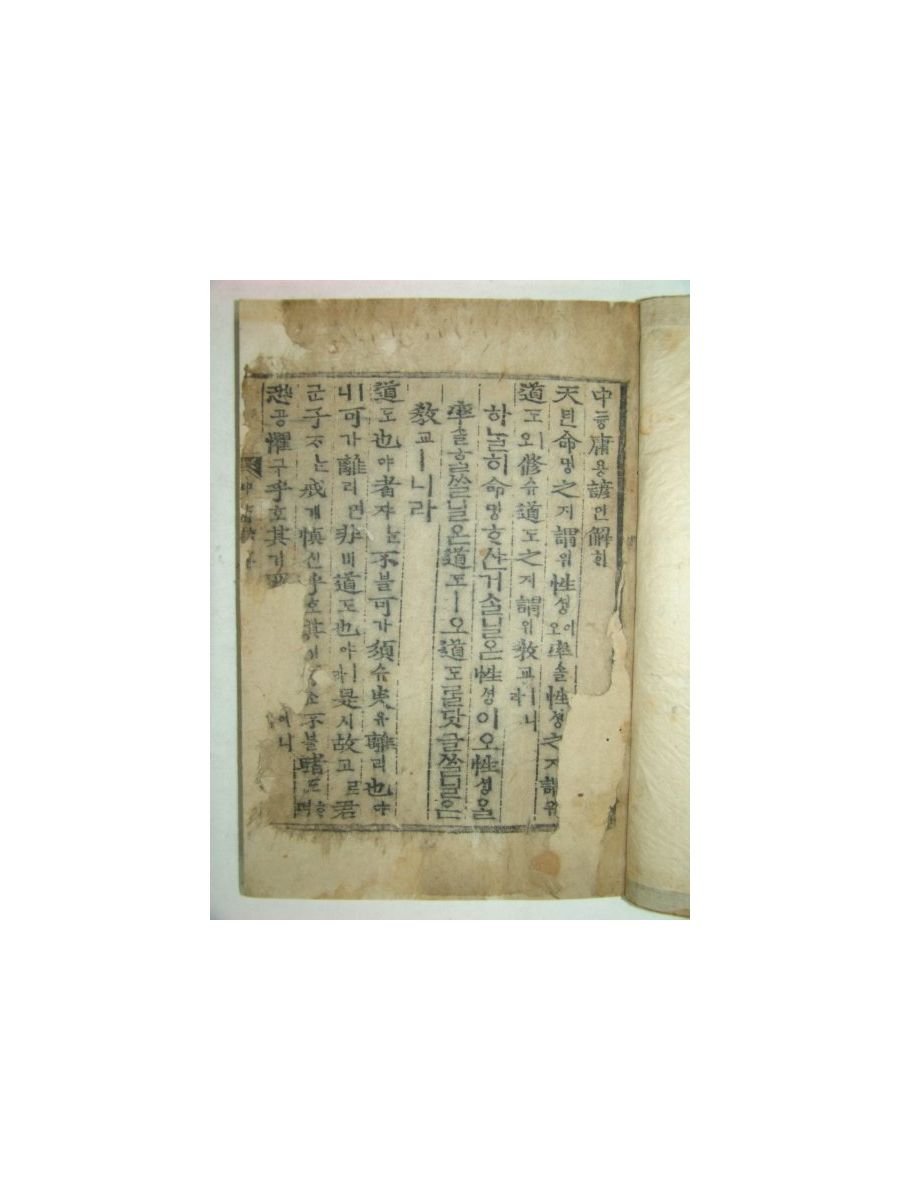 中듕庸용諺언解ᄒᆡ
天텬命명之지謂위性셩이오率솔性셩之지謂위
道도ㅣ오修슈道도之지謂위敎교ㅣ니라
하ᄂᆞᆯ히命명ᄒᆞ샨거ᄉᆞᆯ닐온性셩이오性셩을
率솔ᄒᆞᆯᄊᆞᆯ닐온道도ㅣ오道도ᄅᆞᆯ닷글ᄊᆞᆯ닐온
敎교ㅣ니라
道도也야者쟈ᄂᆞᆫ不블可가須슈臾유離리也야
ㅣ니可가離리면非비道도也야ㅣ라是시故고로君
군子ᄌᆞᄂᆞᆫ戒계愼신乎호其기所소不블睹도ᄒᆞ며
恐공懼구乎호其기 이니